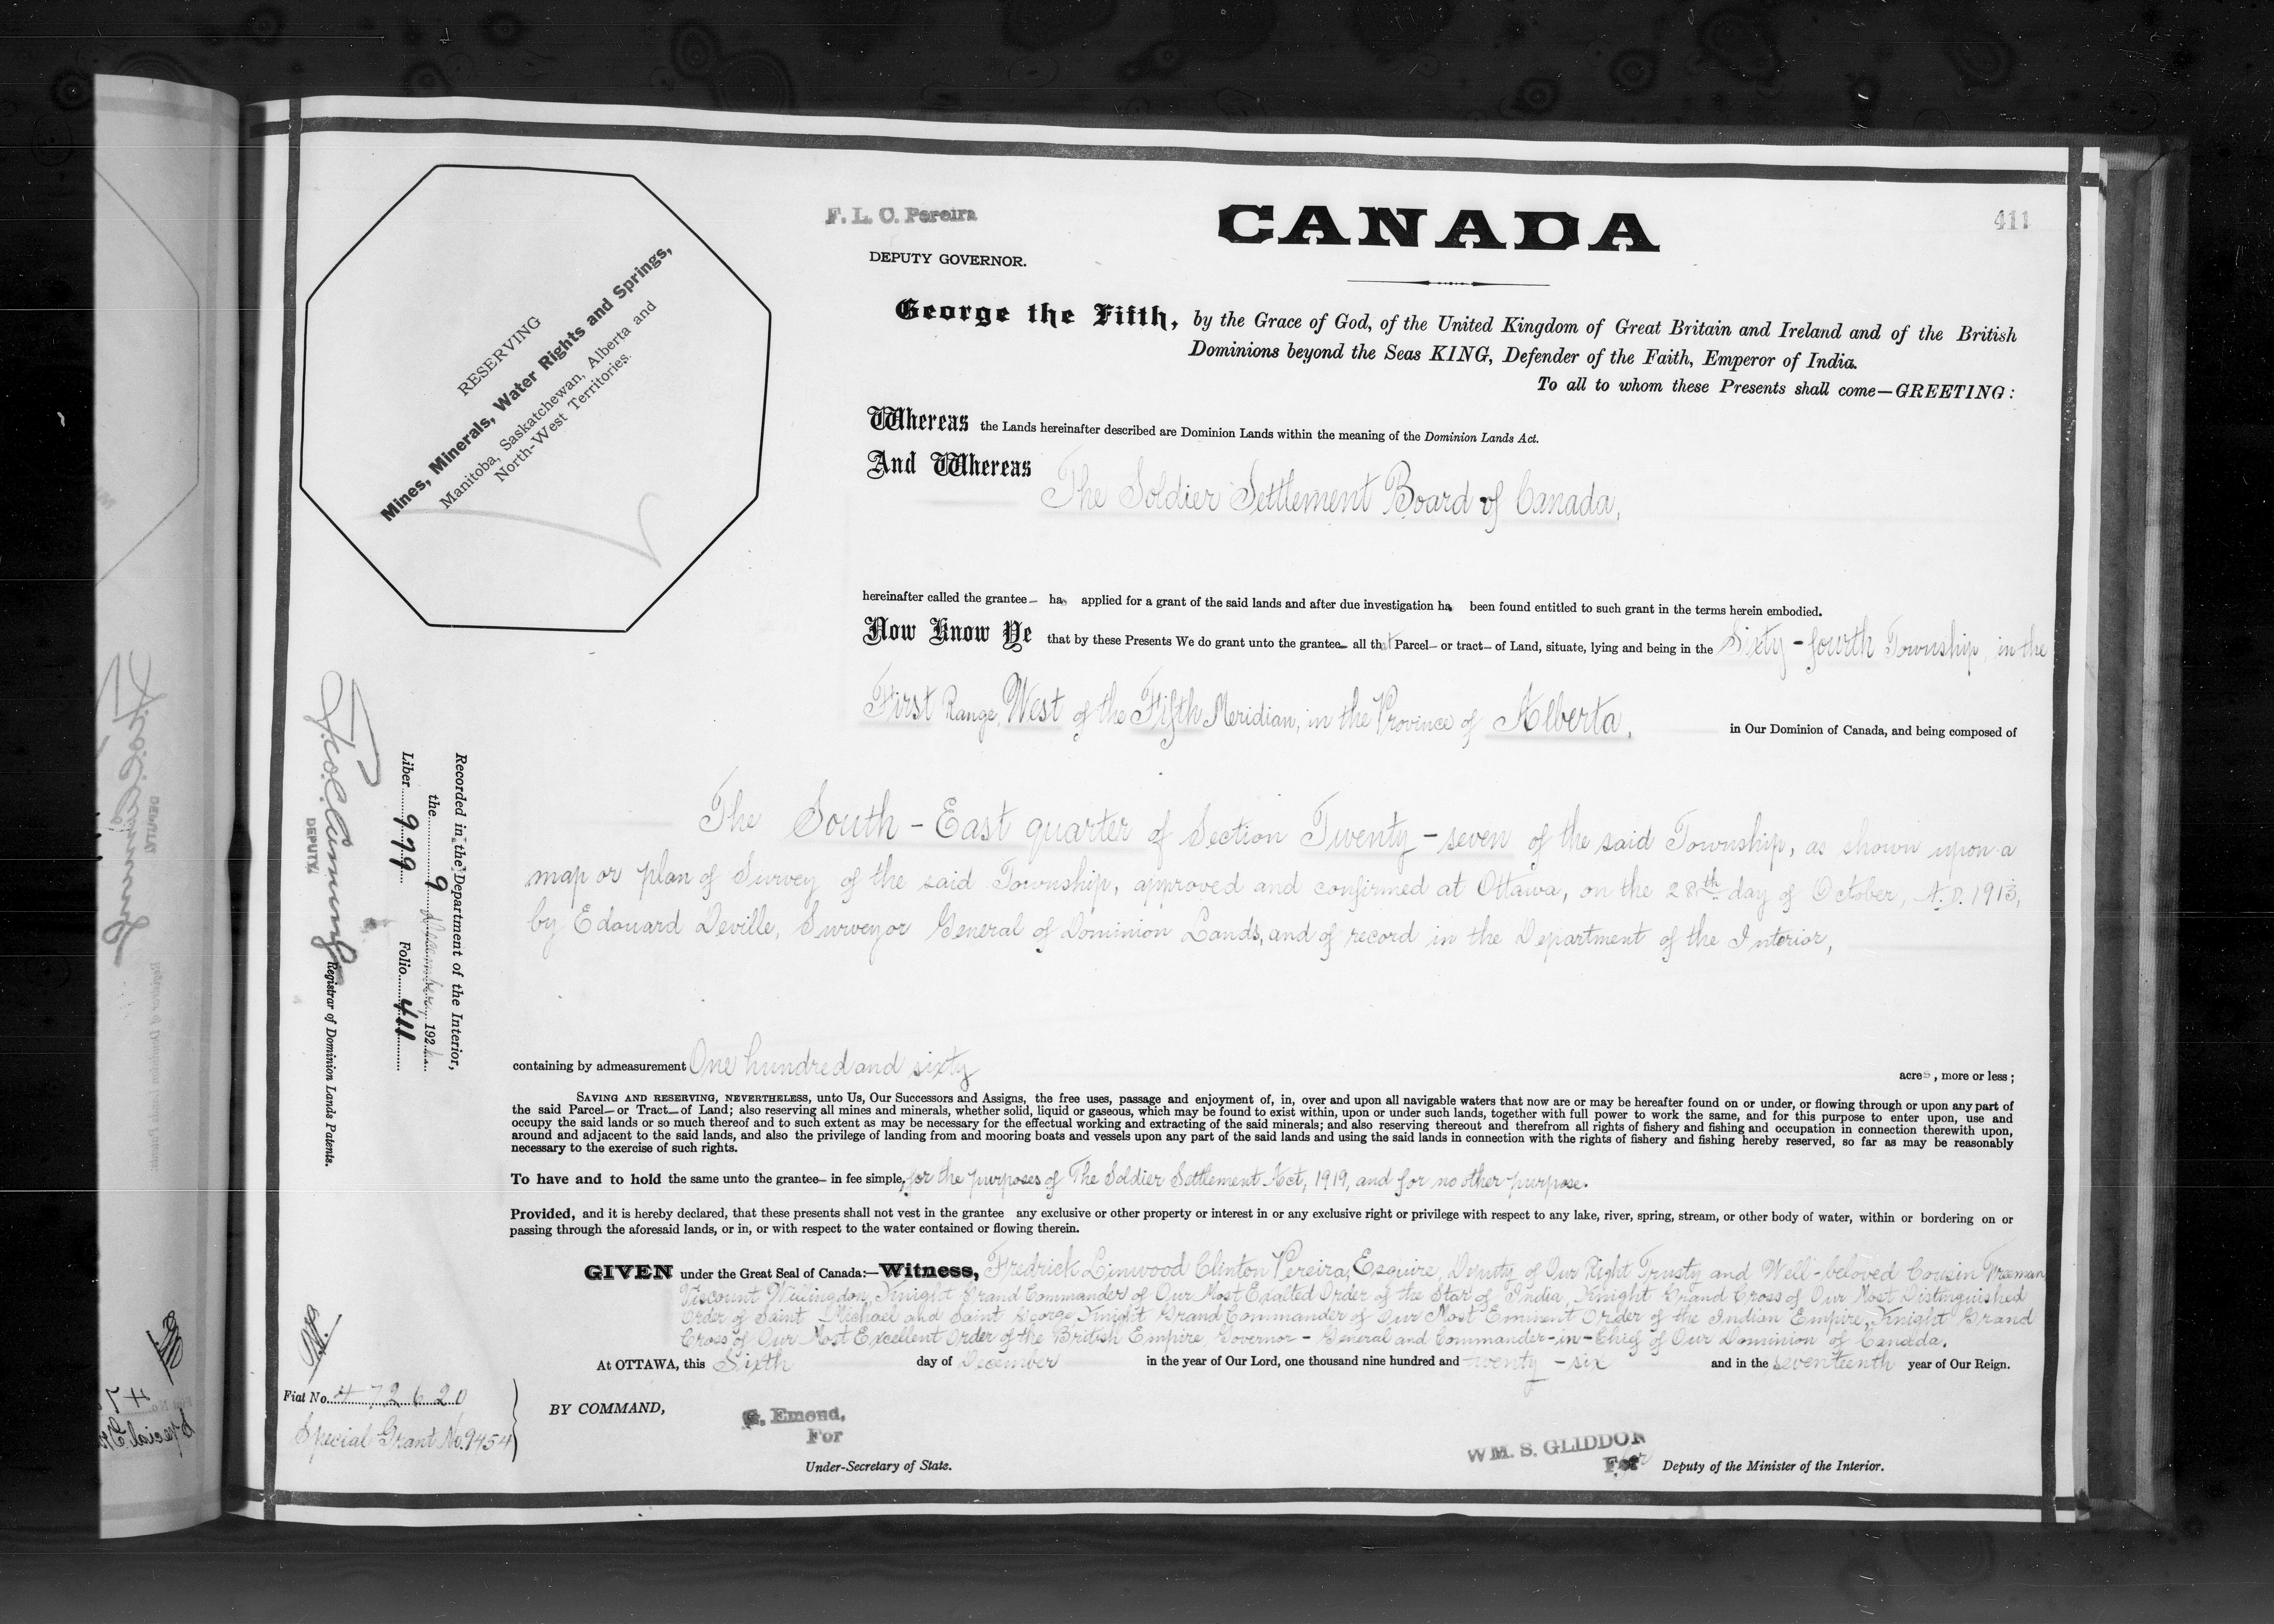 F. L. C. Pereira
DEPUTY GOVERNOR.
CANADA
411
RESERVING
Mines, Minerals, Water Rights and Springs,
Manitoba, Saskatchewan, Alberta and
North-West Territories.
George the Fifth, by the Grace of God, of the United Kingdom of Great Britain and Ireland and of the British
Dominions beyond the Seas KING, Defender of the Faith, Emperor of India.
To all to whom these Presents shall come—GREETING:
Whereas the Lands hereinafter described are Dominion Lands within the meaning of the Dominion Lands Act.
And Whereas The Soldier Settlement Board of Canada,
hereinafter called the grantee— has applied for a grant of the said lands and after due investigation has been found entitled to such grant in the terms herein embodied.
Now Know Ye that by these Presents We do grant unto the grantee— all that Parcel— or tract— of Land, situate, lying and being in the Sixty-fourth Township, in the
First Range, West of the Fifth Meridian, in the Province of Alberta, in Our Dominion of Canada, and being composed of
The South-East quarter of Section Twenty-seven of the said Township, as shown upon a
map or plan of Survey of the said Township, approved and confirmed at Ottawa, on the 28th day of October, A.D. 1913,
by Edouard Deville, Surveyor General of Dominion Lands, and of record in the Department of the Interior,
containing by admeasurement One hundred and sixty acres, more or less;
SAVING AND RESERVING, NEVERTHELESS, unto Us, Our Successors and Assigns, the free uses, passage and enjoyment of, in, over and upon all navigable waters that now are or may be hereafter found on or under, or flowing through or upon any part of
the said Parcel— or Tract— of Land; also reserving all mines and minerals, whether solid, liquid or gaseous, which may be found to exist within, upon or under such lands, together with full power to work the same, and for this purpose to enter upon, use and
occupy the said lands or so much thereof and to such extent as may be necessary for the effectual working and extracting of the said minerals; and also reserving thereout and therefrom all rights of fishery and fishing and occupation in connection therewith upon,
around and adjacent to the said lands, and also the privilege of landing from and mooring boats and vessels upon any part of the said lands and using the said lands in connection with the rights of fishery and fishing hereby reserved, so far as may be reasonably
necessary to the exercise of such rights.
To have and to hold the same unto the grantee— in fee simple, for the purposes of The Soldier Settlement Act, 1919, and for no other purpose.
Provided, and it is hereby declared, that these presents shall not vest in the grantee any exclusive or other property or interest in or any exclusive right or privilege with respect to any lake, river, spring, stream, or other body of water, within or bordering on or
passing through the aforesaid lands, or in, or with respect to the water contained or flowing therein.
GIVEN under the Great Seal of Canada:—Witness, Fredrick Linwood Clinton Pereira, Esquire, Deputy of Our Right Trusty and Well-beloved Cousin Freeman
Viscount Willingdon, Knight Grand Commander of Our Most Exalted Order of the Star of India, Knight Grand Cross of Our Most Distinguished
Order of Saint Michael and Saint George, Knight Grand Commander of Our Most Eminent Order of the Indian Empire, Knight Grand
Cross of Our Most Excellent Order of the British Empire, Governor-General and Commander-in-Chief of Our Dominion of Canada.
At OTTAWA, this Sixth day of December in the year of Our Lord, one thousand nine hundred and twenty-six and in the seventeenth year of Our Reign.
BY COMMAND,
G. Emond,
For
Under-Secretary of State.
WM. S. GLIDDON
For
Deputy of the Minister of the Interior.
Recorded in the Department of the Interior,
the 9 December 192
Liber 979 Folio 411
DEPUTY
Registrar of Dominion Lands Patents.
Fiat No. 472620
Special Grant No. 9454